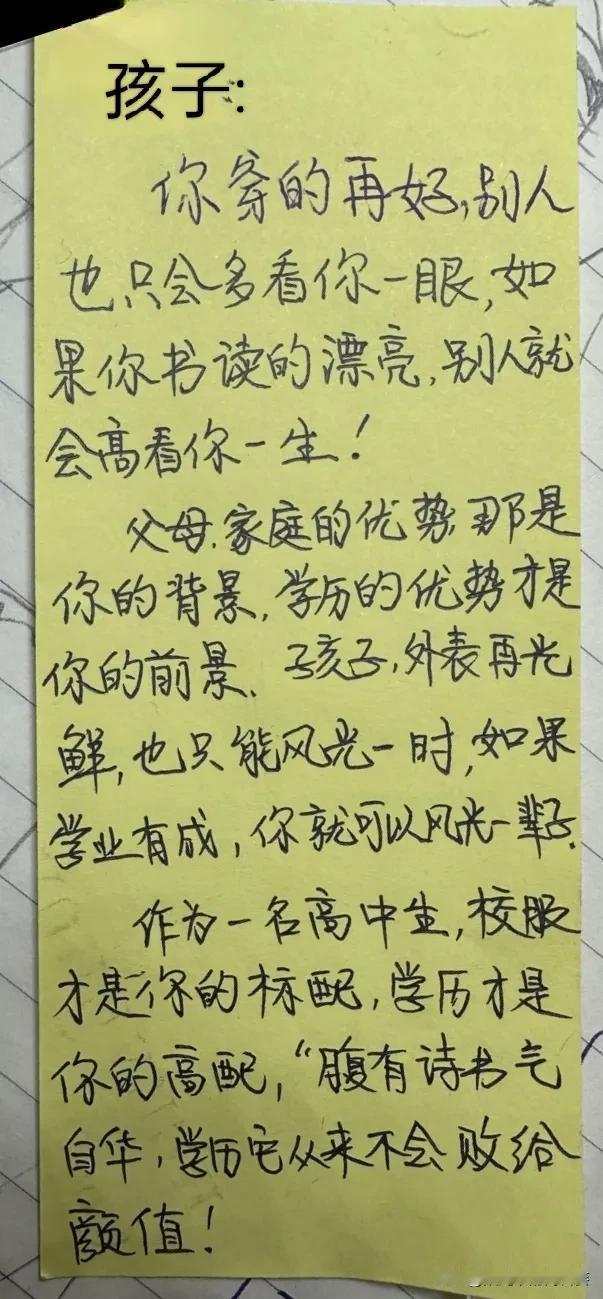 孩子:
你穿的再好,别人
也只会多看你一眼,如
果你书读的漂亮,别人就
会高看你一生!
父母.家庭的优势那是
你的背景,学历的优势才是
你的前景.孩子,外表再光
鲜,也只能风光一时,如果
学业有成,你就可以风光一辈子.
作为一名高中生,校服
才是你的标配,学历才是
你的高配,“腹有诗书气
自华,学历它从来不会败给
颜值!